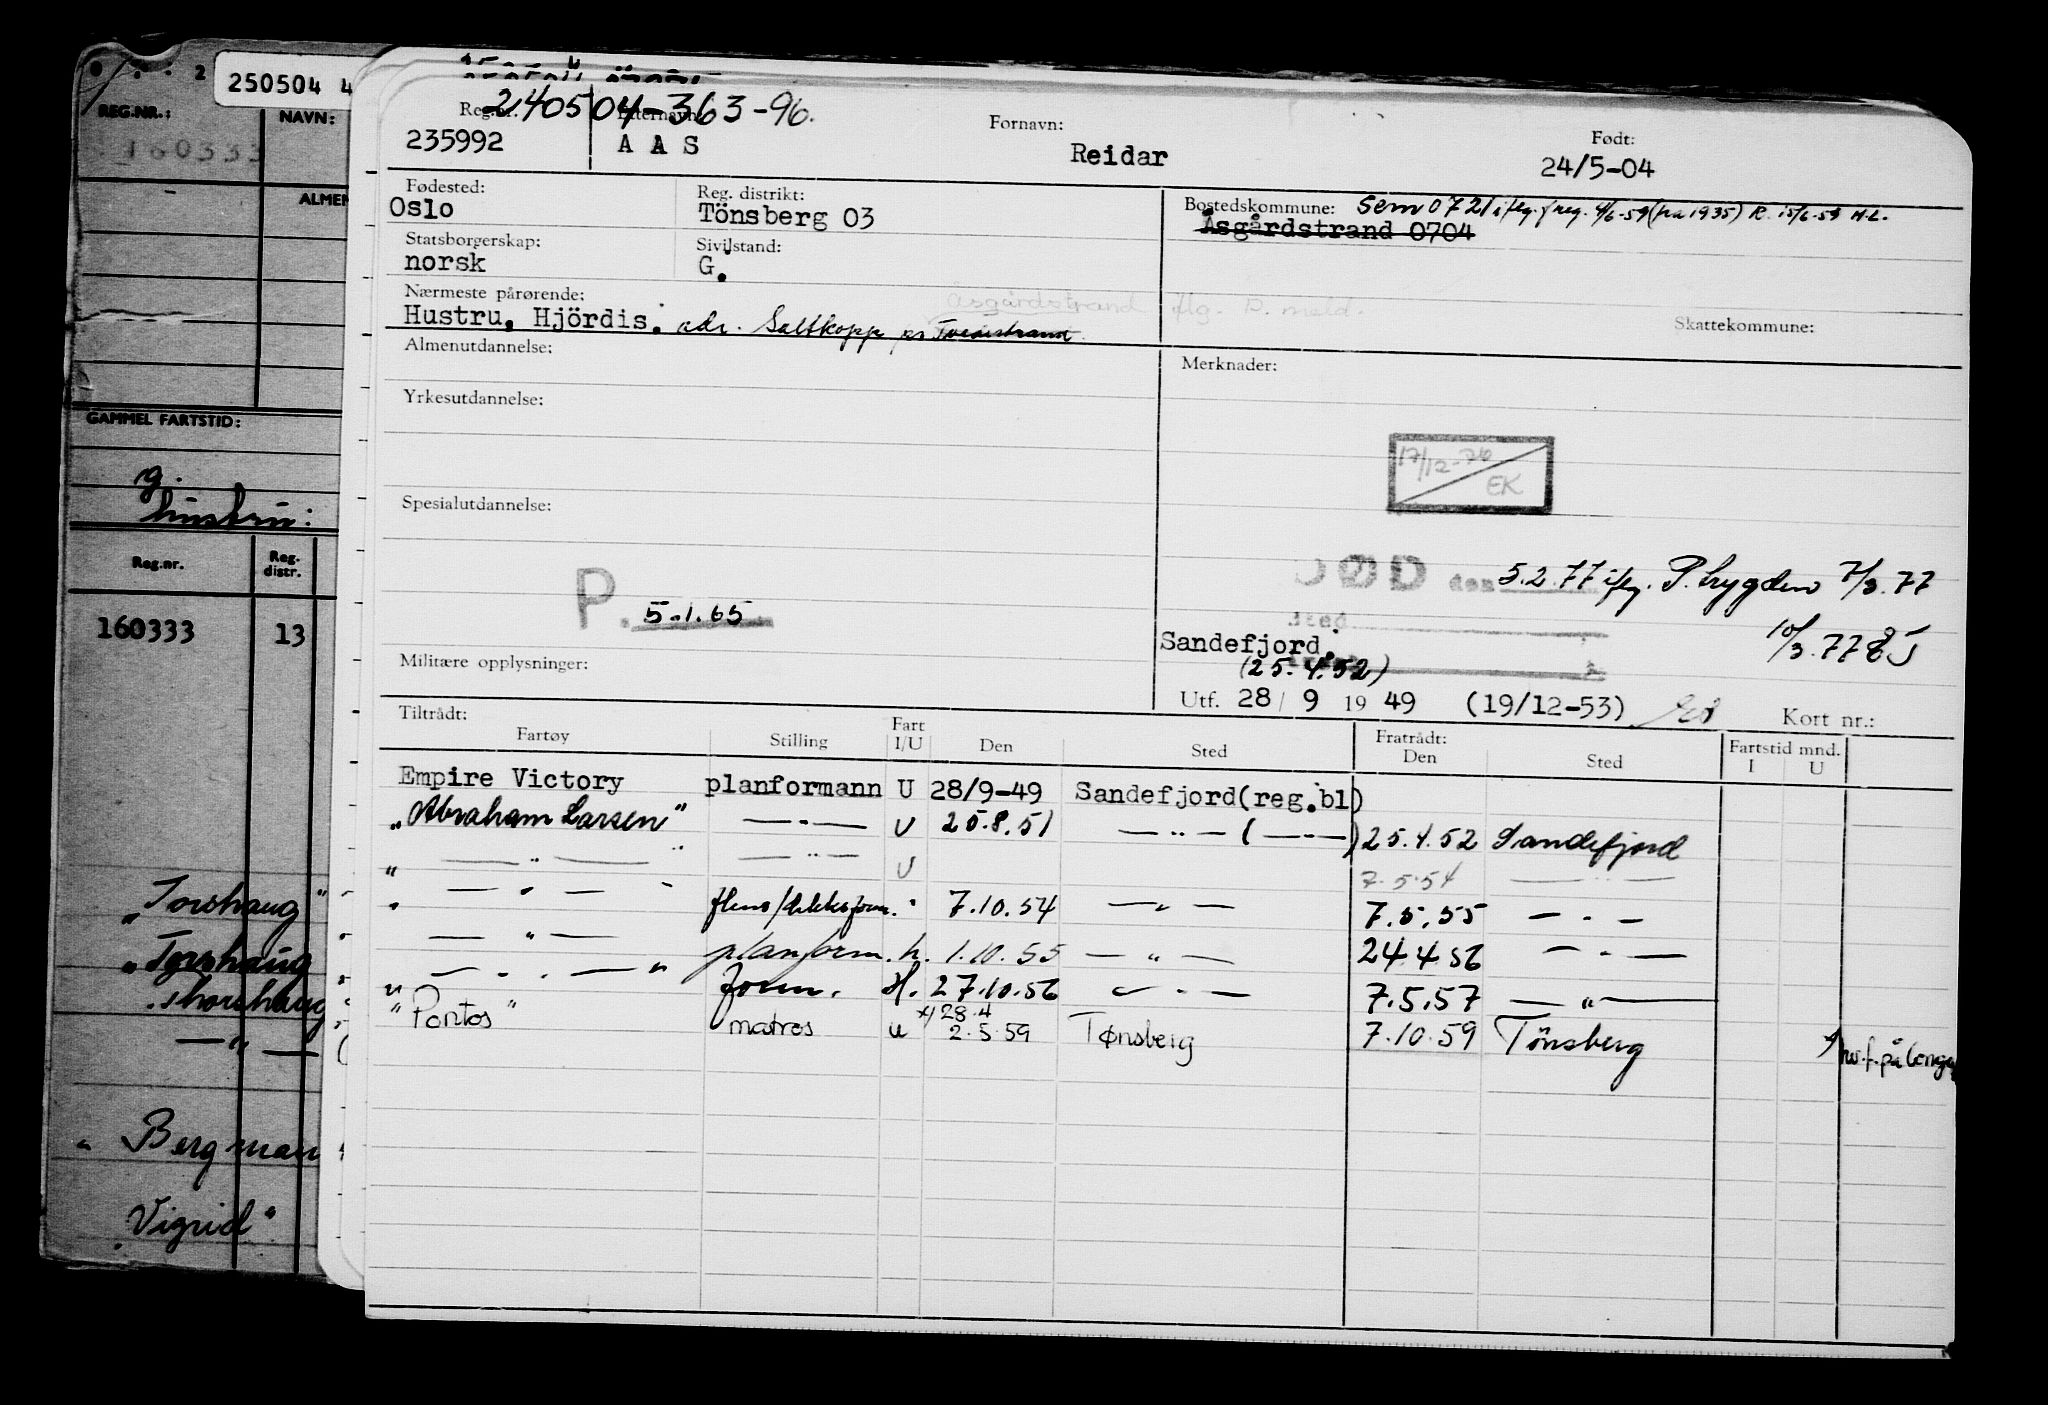 250504 4
REG.NR.:
NAVN:
160333
ALMEN
GAMMEL FARTSTID:
g.
hustru:
Reg.nr.
Reg. distr.
160333 13
"Torshaug"
"Torshaug
"Thorshaug
— " —
"Bergman
"Vigrid"
240504-363-96.
Reg.nr.
Etternavn
Fornavn:
Født:
235992 AAS Reidar 24/5-04
Fødested:
Oslo
Reg. distrikt:
Tönsberg 03
Bostedskommune: Sem 0721 iflg. freg. 4/6-59 (fra 1935) R. 15/6-59 H.L.
Åsgårdstrand 0704
Statsborgerskap:
norsk
Sivilstand:
G.
Nærmeste pårørende:
Åsgårdstrand iflg. P. meld.
Hustru, Hjördis. adr. Saltkopp pr Tvedestrand
Skattekommune:
Almenutdannelse:
Merknader:
Yrkesutdannelse:
17/12-76
EK
Spesialutdannelse:
DØD den 5.2.77 iflg. P.trygden 7/3.77
P. 5.1.65
Sted
Sandefjord.
10/3.77
(25.4.52)
Militære opplysninger:
Utf. 28/9 19 49 (19/12-53)
Kort nr.:
Tiltrådt:
Fratrådt:
Fartstid mnd.
Fartøy Stilling Fart I/U Den Sted Den Sted I U
Empire Victory planformann U 28/9-49 Sandefjord(reg.bl)
"Abraham Larsen" — " — U 25.8.51 — " — ( — " — ) 25.4.52 Sandefjord
" — " — " — " — U 7.5.54 — " —
" — " — " flens/dekksform. " 7.10.54 — " — 7.5.55 — " —
— " — planform. h. 1.10.55 — " — 24.4.56 — " —
" — " — " form. H. 27.10.56 — " — 7.5.57 — " —
"Pontos" matros u x/28.4 2.5.59 Tønsberg 7.10.59 Tönsberg